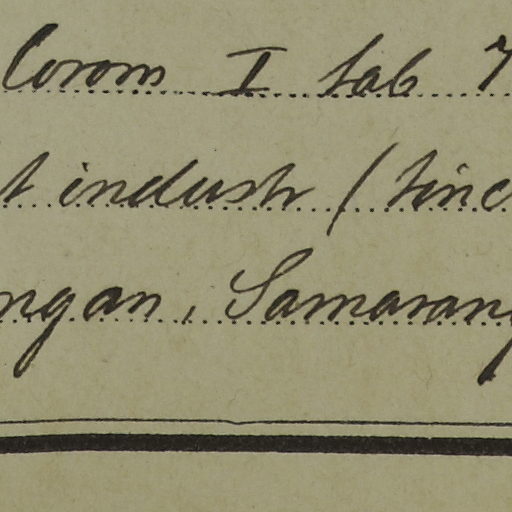 Corom I tab 7
t industr (tinc
ngan, Samarang